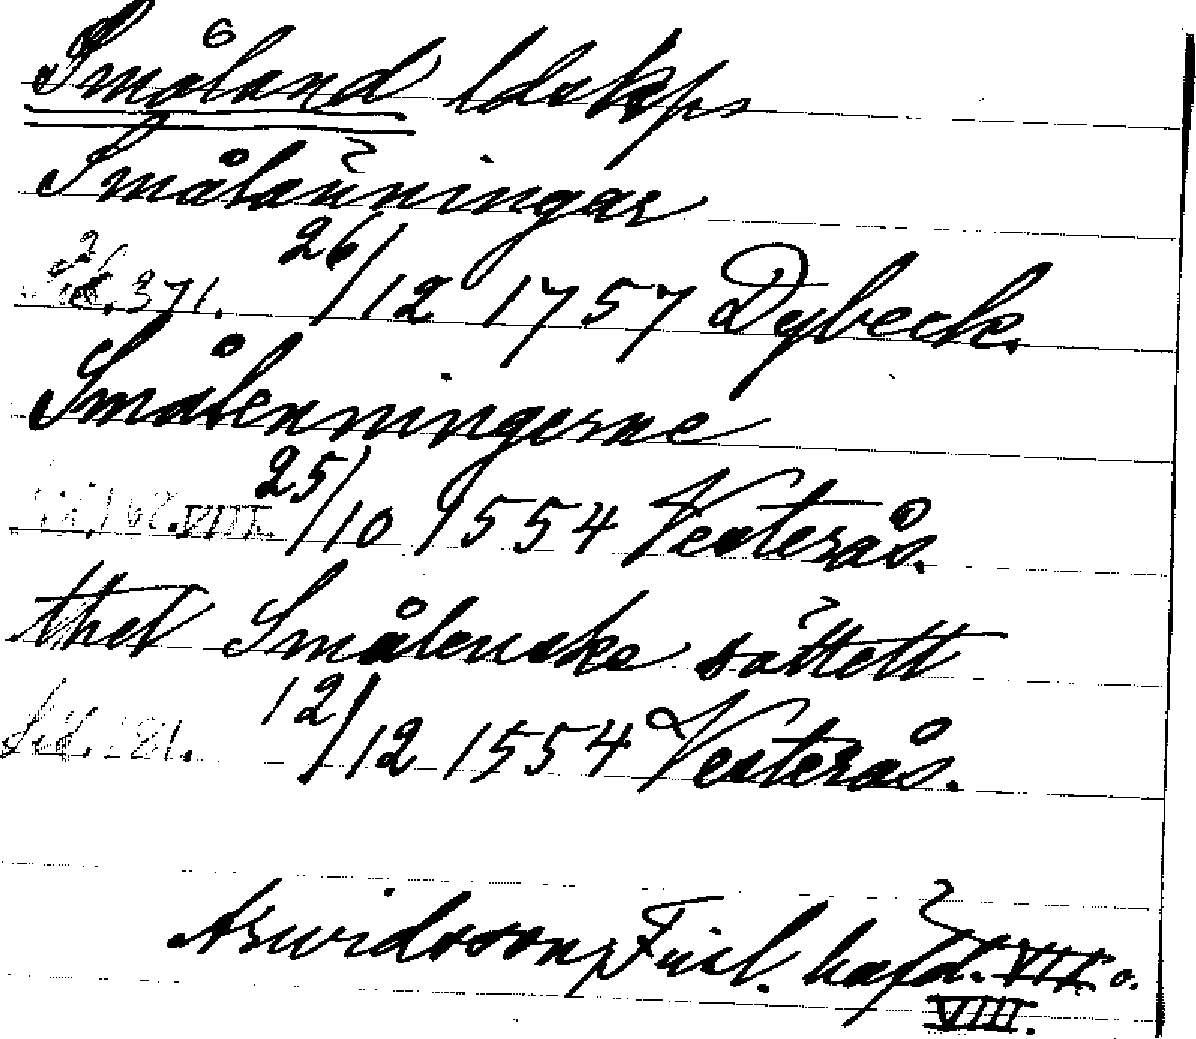 Småland ldskp
Smålänningar
Sid. 371. 26/12 1757 Dybeck.
Smålenningerne
VIII. 25/10 1554 Vesterås.
thet Smålenske sättett
Sid. 81. 12/12 1554 Vesterås.
Arwidsson, Finl. häfd. VII o.
VIII.